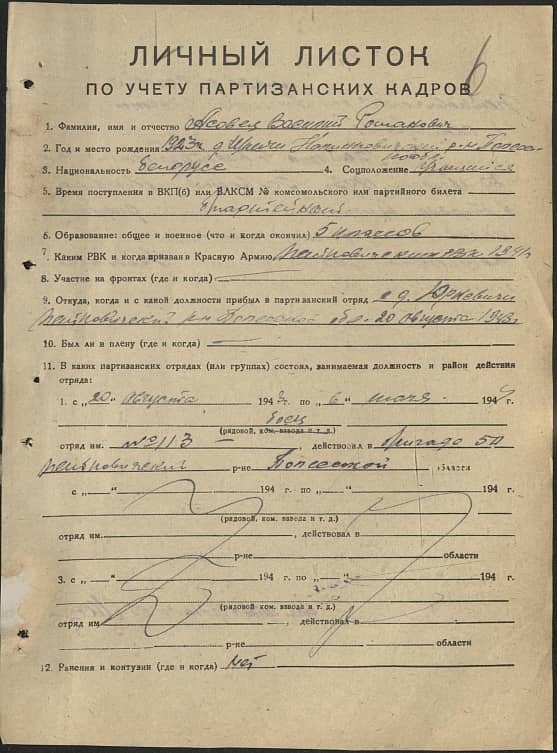 6
ЛИЧНЫЙ ЛИСТОК
ПО УЧЕТУ ПАРТИЗАНСКИХ КАДРОВ
1. Фамилия, имя и отчество Василий Романович
2. Год и место рождения 1923г д.
3. Национальность белорусс 4. Соцположение
5. Время поступления в ВКП(б) или ВЛКСМ № комсомольского или партийного билета
6. Образование: общее и военное (что и когда окончил) 5 классов
7. Каким РВК и когда призван в Красную Армию РВК 1941г
8. Участие на фронтах (где и когда) —
9. Откуда, когда и с какой должности прибыл в партизанский отряд с д. Юркевичи
р-н Полесской обл. 20 августа 1943г
10. Был ли в плену (где и когда) —
11. В каких партизанских отрядах (или группах) состоял, занимаемая должность и район действия
отряда:
1. с „20" августа 1943 г. по „6" 194 г.
боец
(рядовой, ком. взвода и т. д.)
отряд им. №113 — , действовал в бригаде
р-не Полесской области
с „ —" 194 г. по „ —" 194 г.
(рядовой, ком. взвода и т. д.)
отряд им. , действовал в
р-не области
3. с „ —" 194 г. по „ —" 194 г.
(рядовой, ком. взвода и т. д.)
отряд им , действовал в
р-не области
12. Ранения и контузии (где и когда) нет